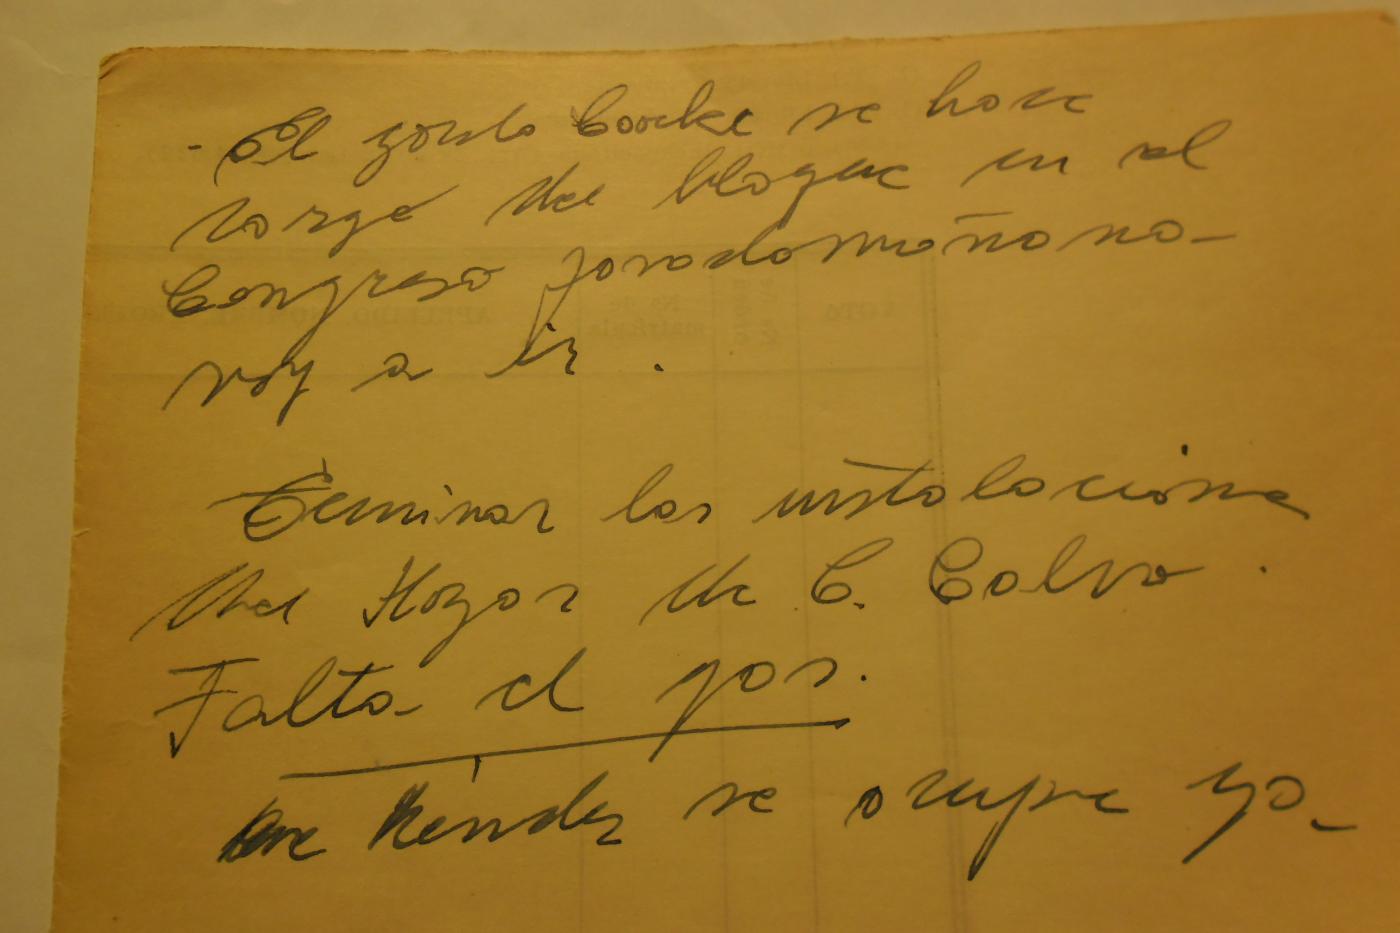 - El gordo Cooke se hace
cargo del bloque en el
Congreso, pasado mañana no
voy a ir.
Terminar las instalaciones
del Hogar de C. Calvo.
Falta el gas.
Que Méndez se ocupe ya
VOTO
Nº de
matrícula
APELLIDO